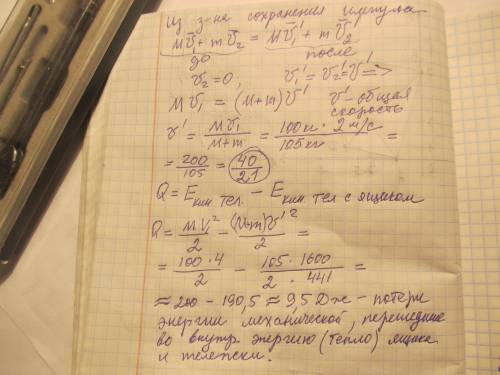 Из з-на сохранения импульса
Mv̄₁ + mv̄₂ = Mv̄₁' + mv̄₂'
до после
v₂ = 0, v₁' = v₂' = v' =>
Mv₁ = (M+m)v' v' - общая
скорость
v' = Mv₁/(M+m) = 100кг · 2 м/с / 105кг =
= 200/105 = 40/21
Q = Eкин тел. - Eкин тел с ящиком
Q = Mv₁²/2 - (M+m)v'²/2 =
= 100·4/2 - 105·1600/(2·441) =
≈ 200 - 190,5 ≈ 9,5 Дж - потери
энергии механической, перешедшие
во внутр. энергию (тепло) ящика
и тележки.